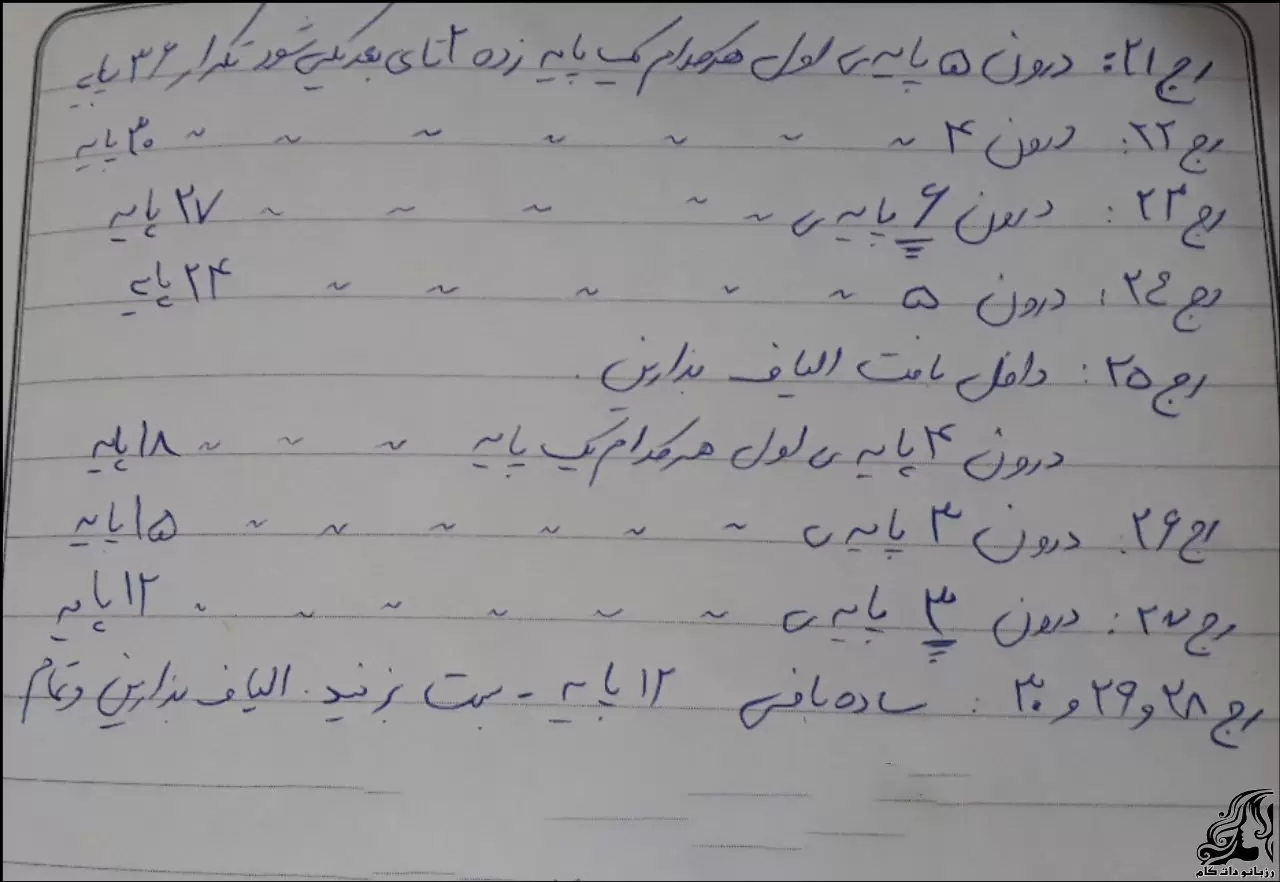 رج ۲۱: درون ۵ پایه ی اول هرکدام یک پایه زده ۲ تای بعد یکی شود تکرار ۳۶ پایه
رج ۲۲: درون ۴ ~ ~ ~ ~ ~ ~ ~ ۳۰ پایه
رج ۲۳: درون ۶ پایه ی ~ ~ ~ ~ ~ ۲۷ پایه
رج ۲۴: درون ۵ ~ ~ ~ ~ ~ ۲۴ پایه
رج ۲۵: داخل بافت الیاف بذارین.
درون ۴ پایه ی اول هرکدام یک پایه ~ ~ ~ ۱۸ پایه
رج ۲۶: درون ۳ پایه ی ~ ~ ~ ~ ~ ~ ۱۵ پایه
رج ۲۷: درون ۳ پایه ی ~ ~ ~ ~ ~ ~ ۱۲ پایه
رج ۲۸ و ۲۹ و ۳۰: ساده بافی ۱۲ پایه - بست بزنید. الیاف بذارین و تمام
رزبانو دات کام